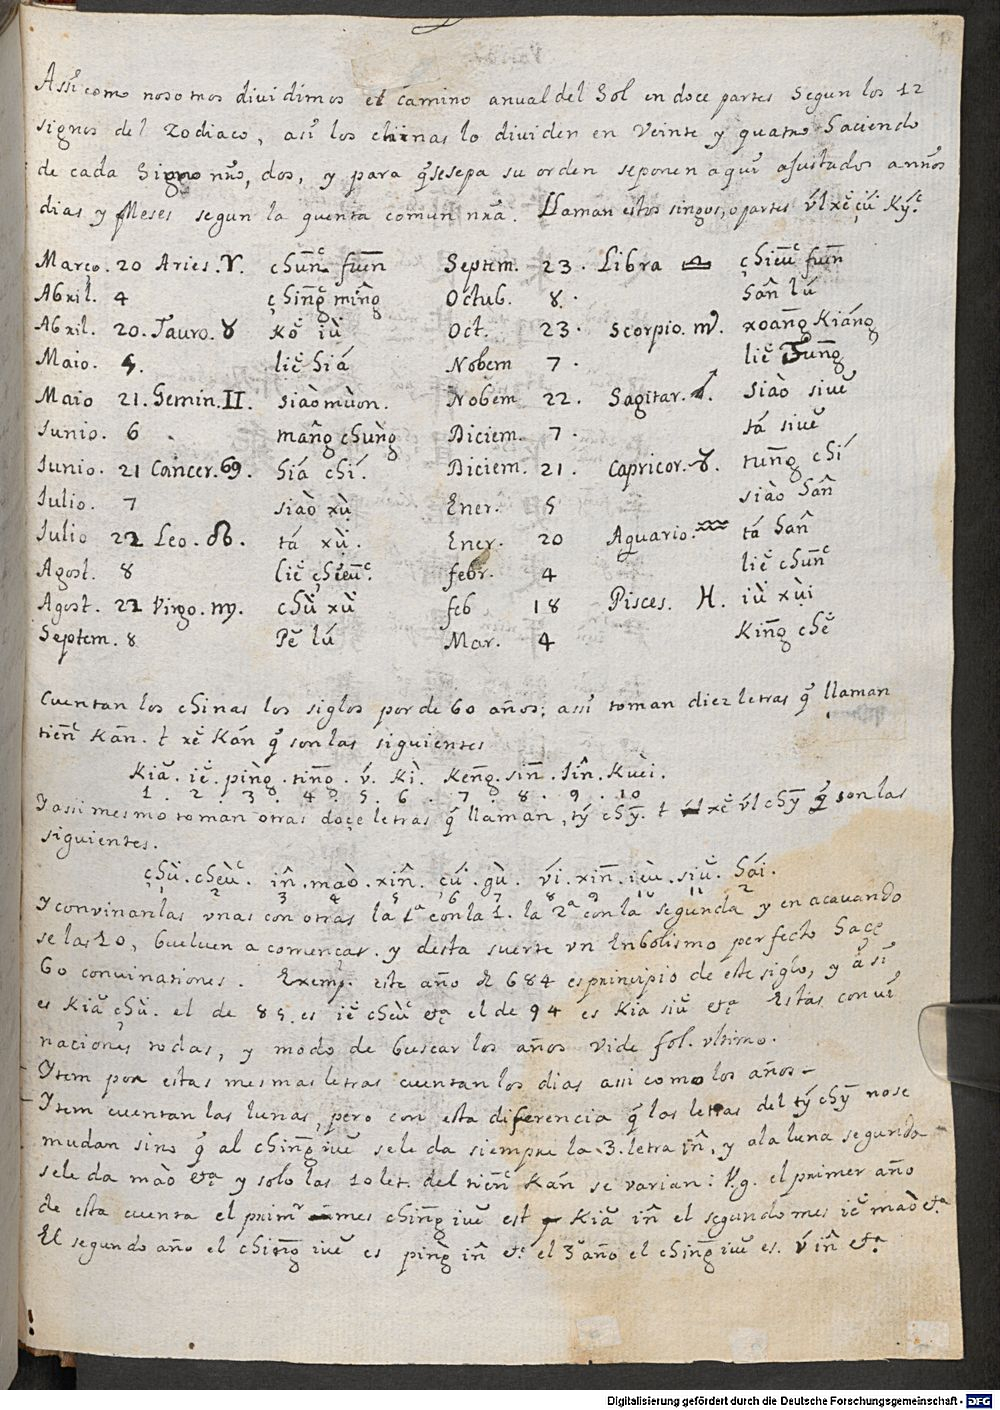 Assi como nosotros dividimos el camino anual del Sol en doce partes segun los 12
signos del Zodiaco, asi los chinas lo dividen en veinte y quatro haciendo
de cada Signo nrõ, dos, y para q̃ se sepa su orden se ponen aqui ajustados a nrõs
dias y Meses segun la quenta comun nrã. Llaman estos singos, o partes
Março. 20 Aries. ♈. çhūn̄ fuēn Septem. 23. Libra ♎ çhiēū fuēn
Abril. 4 çhin̂g min̂g Octub. 8. hân lú
Abril. 20. Tauro. ♉ kŏ iù Oct. 23. Scorpio. ♏. xoan̄g kián̄g
Maio. 5. liĕ hiá Nobem 7. liĕ tun̄g
Maio 21. Gemin. II. siào mùon. Nobem 22. Sagitar. ♐. siào siuĕ
Junio. 6. man̂g chùn̄g Diciem. 7. tá siuĕ
Junio. 21 Cancer. 69. hiá chí. Diciem. 21. Capricor. ♑. tun̄g chí
Julio. 7 siào xù Ener. 5 siào hân
Julio 22 Leo. ♌. tá xù. Ener. 20 Aquario. ♒ tá hân
Agost. 8 liĕ çhiēū. febr. 4 liĕ chūn
Agost. 22 Virgo. ♍. chù xù feb 18 Pisces. H. iù xùi
Septem. 8 Pĕ lú Mar. 4 kin̄g chĕ
Cuentan los chinas los siglos por de 60 años; assi toman diez letras q̃ llaman
tiēn kān. t xĕ kān q̃ son las siguientes
kiă. iĕ. pìng. tin̄g. v́. kì. ken̄g. sin̄. jîn. kuèi.
1. 2. 3. 4. 5. 6. 7. 8. 9. 10
Y assi mesmo toman otras doçe letras q̃ llaman, tý chȳ. t xĕ v́l chȳ q̃ son las
siguientes.
çhù. chèù. in̂. maò. xin̂. çú. gù. ví. xin̄. ièu. siŭ. hái.
2 3 4 5 6 7 8 9 10 11 2
Y convinanlas unas con otras la 1ª con la 1. la 2ª con la segunda y en acavando
se las 10, buelven a començar. y desta suerte un Enbolismo perfecto haçe
60 convinationes. Exemp. este año de 684 es principio de este siglo, y asi
es kiă çhù. el de 85. es iĕ chèu etª el de 94 es kiă siŭ etª Estas convi
naciones todas, y modo de buscar los años vide fol. ultimo.
Ytem por estas mesmas letras cuentan los dias assi como los años –
Ytem cuentan las lunas, pero con esta diferencia q̃ las letras del tý chȳ no se
mudan sino q̃ al chin̄g iuĕ se le da siempre la 3. letra in̂, y a la luna segunda
se le da mào etª y solo las 10 let. del tiēn kān se varian: V.g. el primer año
de esta cuenta el primr mes chin̄g iuĕ est kiă in̂ el segundo mes iĕ maò etª
El segundo año el chin̄g iuĕ es pìng in̂ etª el 3º año el ching iuĕ es. v́ in̂ etª
Digitalisierung gefördert durch die Deutsche Forschungsgemeinschaft - DFG